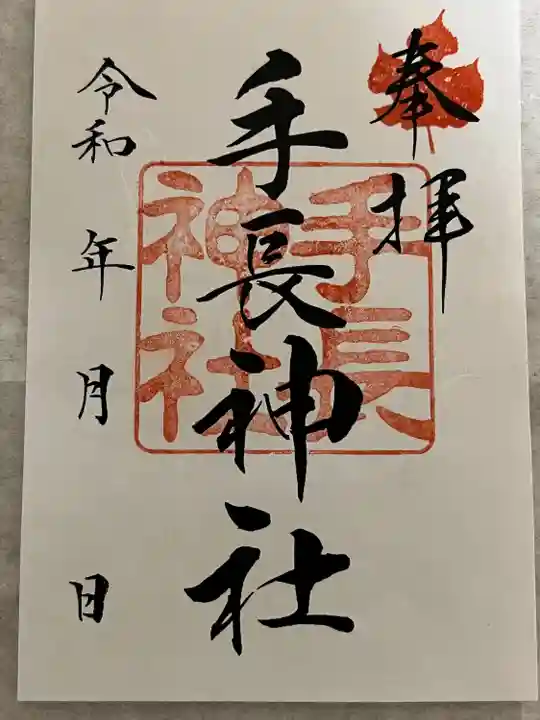 奉拝
手長神社
手長
神社
令和 年 月 日